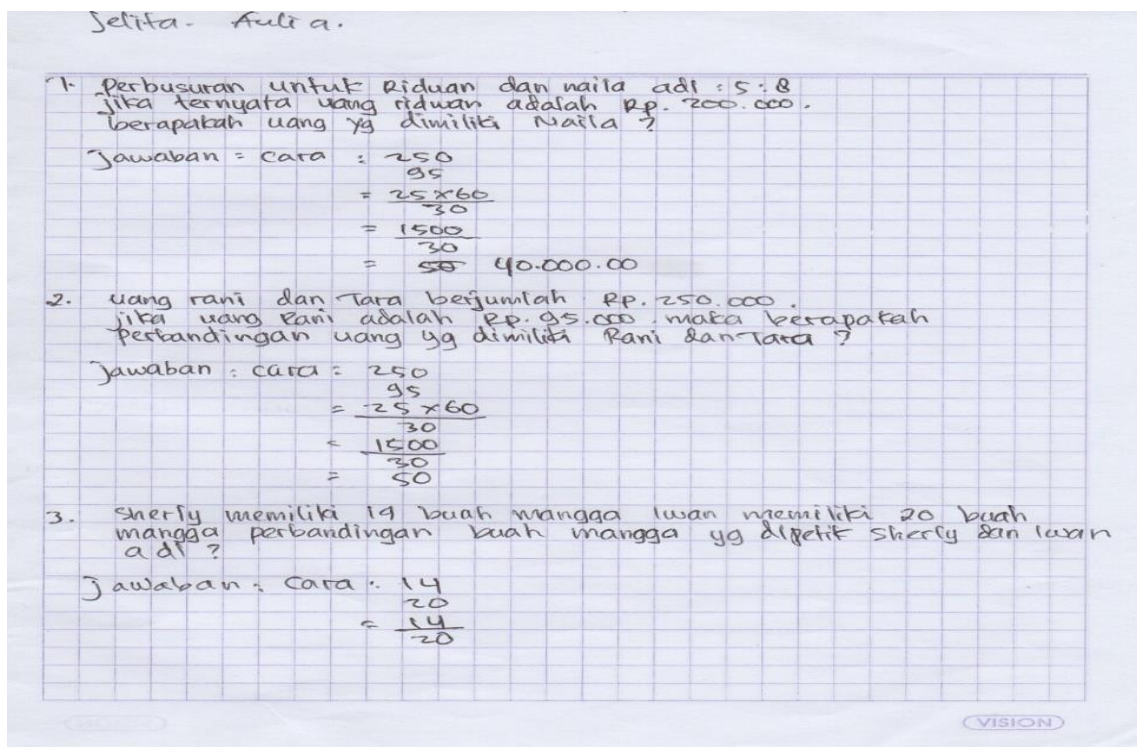 Jelita. Aulia.
1. Perbusuran untuk Riduan dan naila adl : 5 : 8
jika ternyata uang riduan adalah Rp. 200.000.
berapakah uang yg dimiliki Naila ?
Jawaban = cara : 250
95
= 25 x 60
30
= 1500
30
= 50 40.000.00
2. uang rani dan Tara berjumlah Rp. 250.000.
jika uang Rani adalah Rp. 95.000. maka berapakah
perbandingan uang yg dimiliki Rani dan Tara ?
Jawaban : cara : 250
95
= 25 x 60
30
= 1500
30
= 50
3. Sherly memiliki 14 buah mangga Iwan memiliki 20 buah
mangga perbandingan buah mangga yg dipetik Sherly dan Iwan
adl ?
Jawaban : Cara : 14
20
= 14
20
VISION